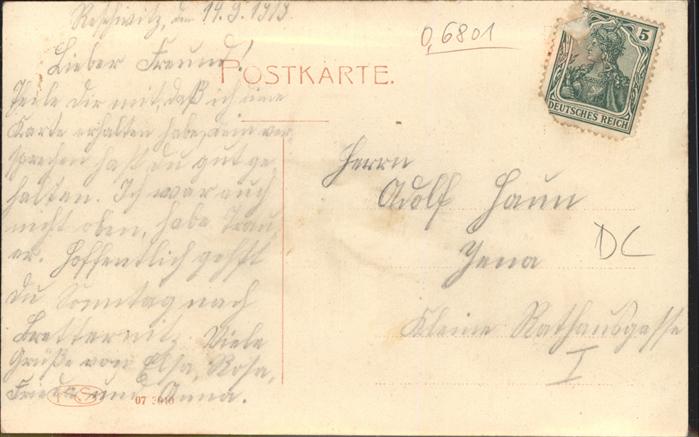 Reschwitz, den 14.9.1913.
Lieber Freund!
Teile Dir mit, daß ich eine
Karte erhalten habe, dein ver-
sprechen hast du gut ge
halten. Ich war auch
nicht oben, habe Trau
er. Hoffentlich gehst
du Sonntag nach
Viele
Grüße von Elsa, Rosa,
Frieda und Anna.
07 3910
POSTKARTE.
0,6801
5
DEUTSCHES REICH
Herrn
Adolf Haun
Jena
DC
Kleine Rathausgasse
I